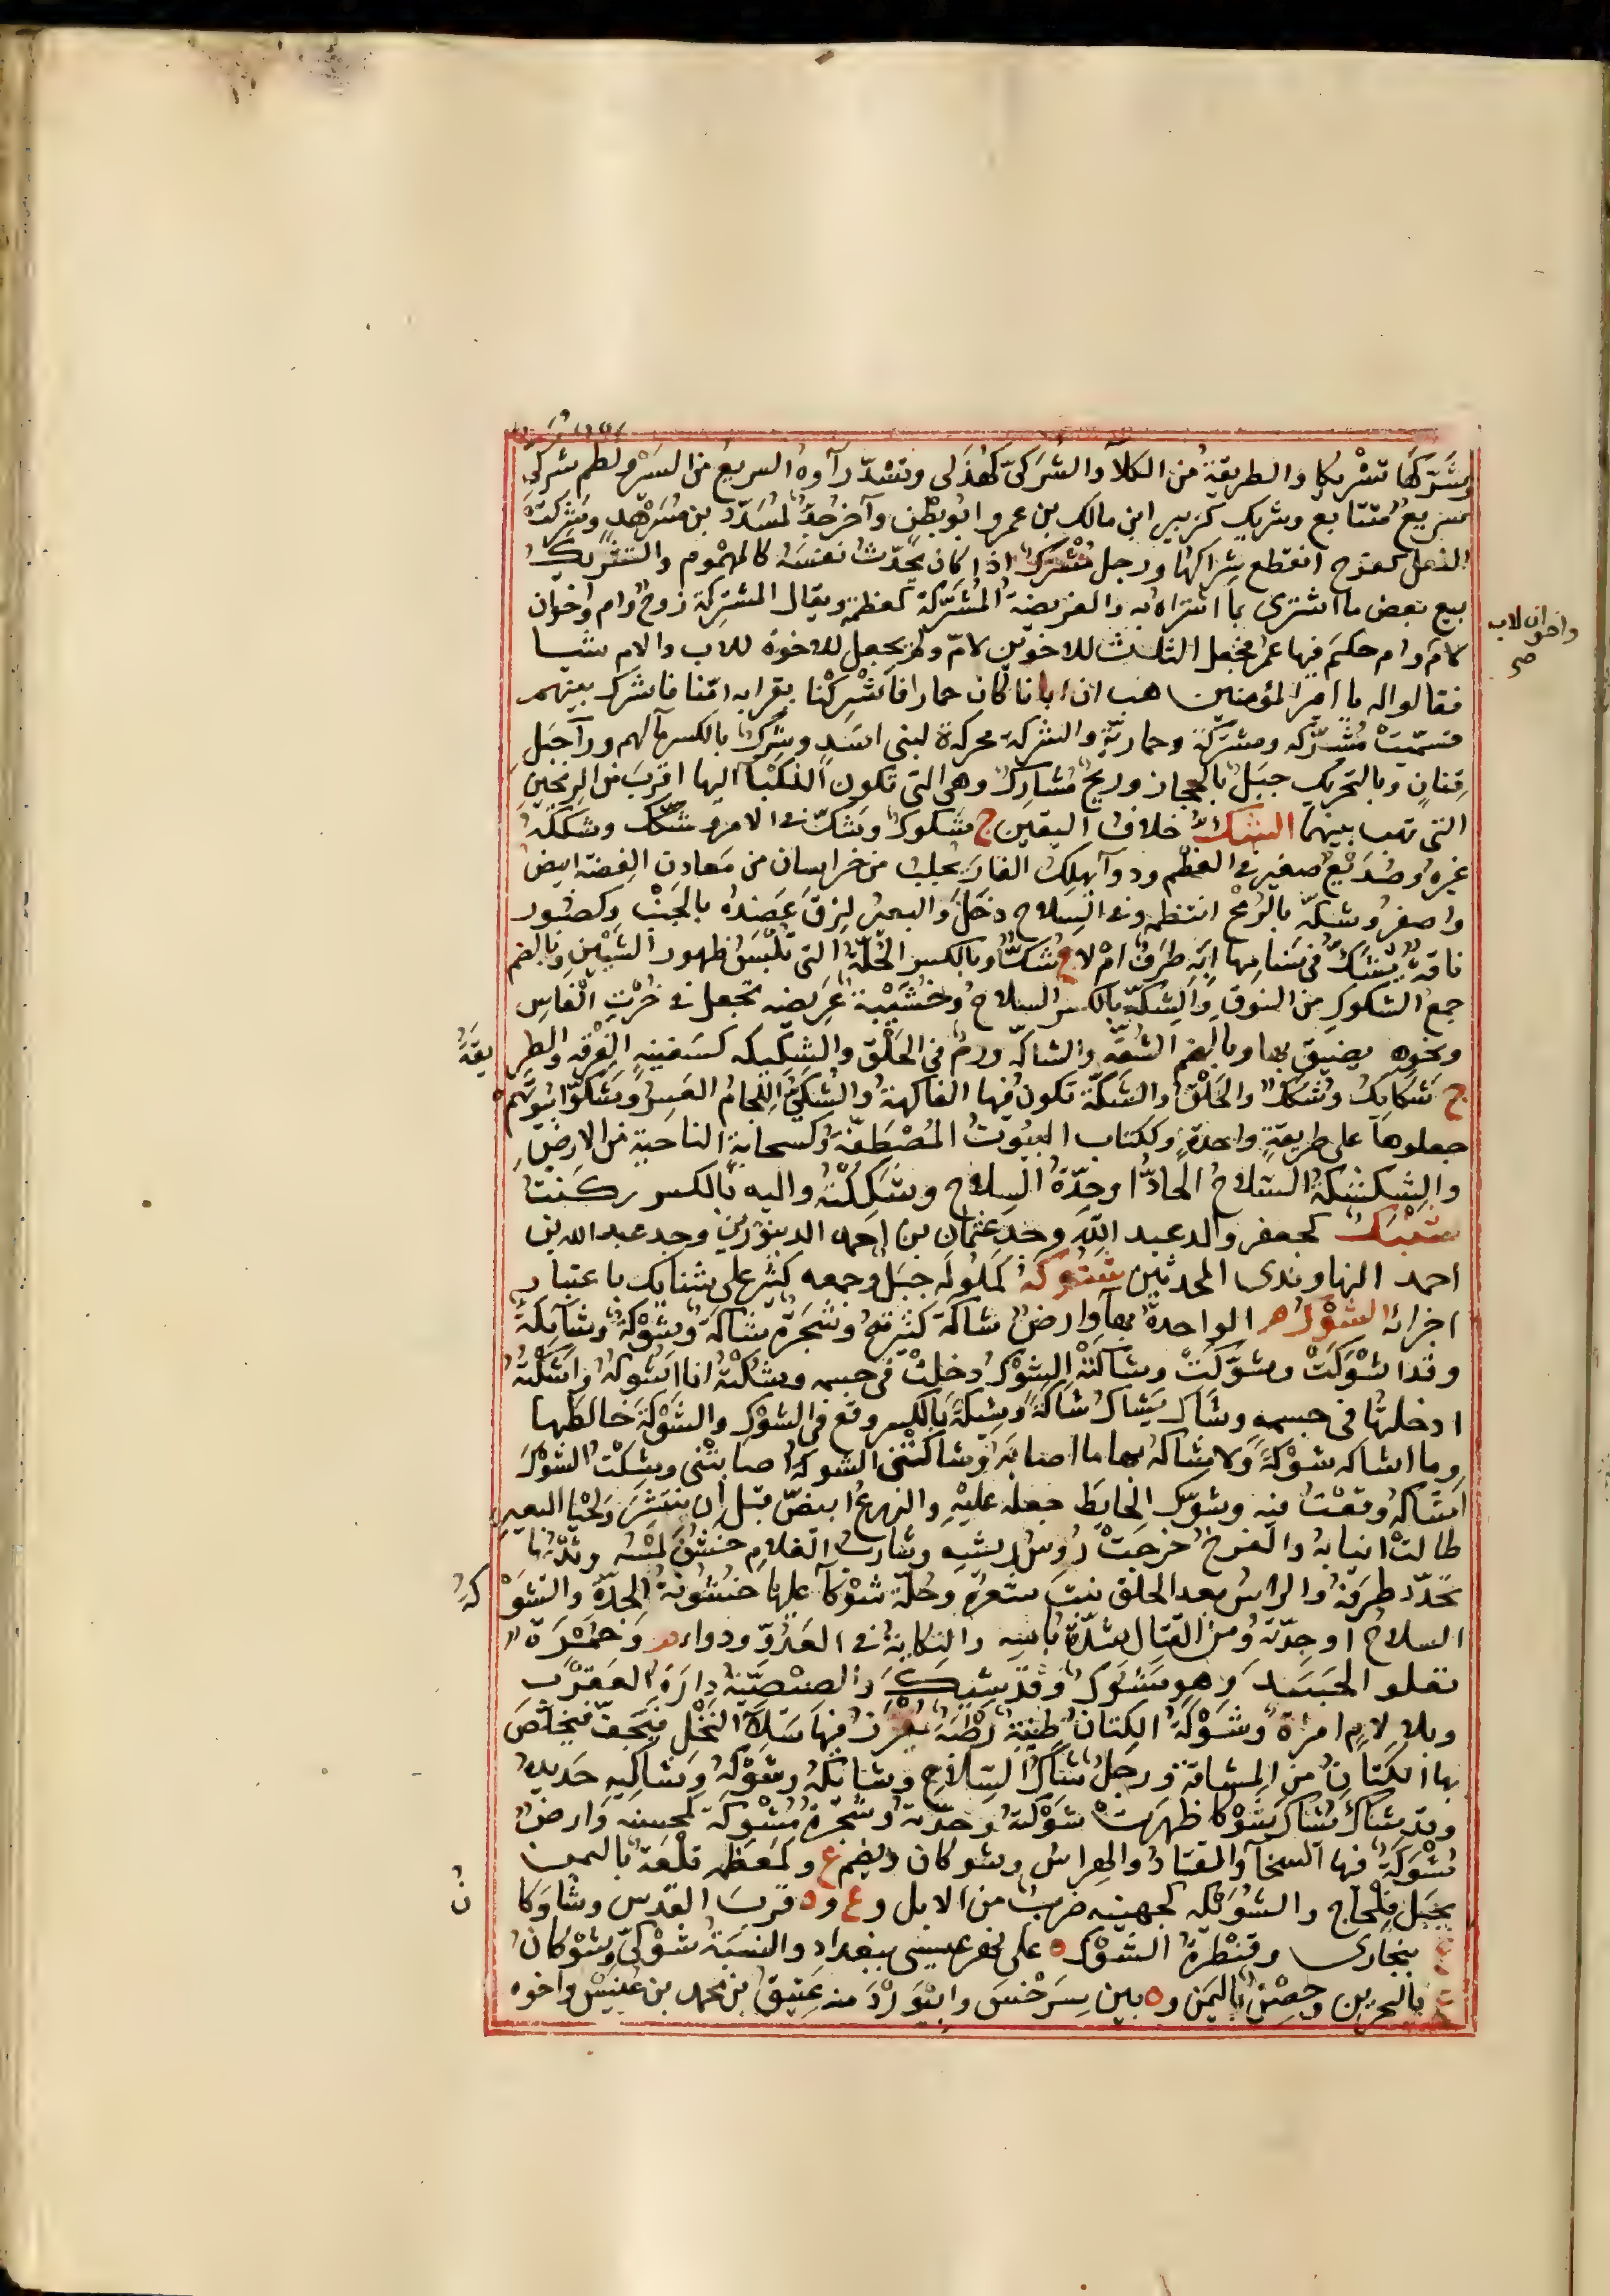 وشرّكها تشريكا والطريقةُ من الكلأ والشركىّ كهُذَلى وتشدّد رآوه السريعُ من السَير ولطم شركى
سريع متتابع وشريك كزبير ابن مالك بن عمرو ابو بطن وآخر جدّ لمسدّد بن مسرهد وشركت
النعل كفرح انقطع شراكها ورجل مشترك اذا كان يحدّث نفسه كالمهموم والتشريك
بيع بعض ما اشترى بما اشتراه به والفريضة المشرّكة كمعظمة ويقال المشتركة زوج وام واخوان
لام وام حكم فيها عمر فجعل الثلث للاخوين لامّ ولم يجعل للاخوة للاب والام شيا
واخوان لاب صح
فقالوا له يا امير المؤمنين هب ان ابانا كان حمارا فاشركنا بقرابه امّنا فاشرك بينهم
فسمّيت مشرّكه ومشتركة وحماريّة والشركة محركة لبنى اسد وشرك بالكسر مآ لهم ورآ جبل
قنان وبالتحريك جبل بالحجاز وريح مشارك وهى التى تكون النكبآ اليها اقرب من الريحين
التى تهب بينهما الشك خلاف اليقين ج شكوك وشكّ فى الامر وشكّك وشككه
غيره وصُديع صغير فى العظم ودوآ يهلك الفار يجلب من خراسان من معادن الفضة ابيض
واصفر وشكّه بالرمح انتظمه وفى السلاح دخل والبعير لزق عضده بالجنب وكصبور
ناقة يشك فى سنامها ابه طرق ام لا ج شكّ وبالكسر الحلّة التى تلبس ظهور السيتين وبالضم
جمع الشكوك من النوق والشكّة بالكسر السلاح وخشيبة عريضه تجعل فى خرت الفاس
ونحوه يضيق بها وبالضم الشقّه والشاكّه ورم فى الحلق والشكيكه كسفينه الفرقه والطريقة
ج شكايك وشكك والخلق والسكّة تكون فيها الفاكهة والشكى اللجام العسر وشكّوا بيوتهم
جعلوها على طريقة واحدة وككتاب البيوت المصطفّة وكسحابة الناحية من الارض
والشكشكة السلاح الحادّ او حدّة السلاح وشككته واليه بالكسر ركنت
شنبك كجعفر والد عبد الله وجد عثمان بن احمد الدينورين وجد عبد الله بن
احمد النهاوندى المحدثين شنوكة كملوله جبل وجمعه كثير على شنايك باعتبار
اجزائه الشوك م الواحدة بهآ وارض شاكة كثيرته وشجرة شاكة وشوكة وشآيكة
وقد اشوكت وشوّكت وشاكته الشوكة دخلت فى جسمه وشكته انا اشوكه واشكته
ادخلتها فى جسمه وشاك يشاك شاكة وشيكة بالكسر وقع فى الشوك والشوكة خالطها
وما اشاكه شوكة ولا شاكه بها ما اصابه وشاكتنى الشوكة اصابتنى وشكت الشوك
اشاكه وقعت فيه وشوّك الحايط جعله عليه والزرع ابيضّ قبل ان ينتشر ولحيا البعير
طالت انيابه والفرخ خرجت رؤس ريشه وشارب الغلام خشن لمسه وثديها
تحدّد طرفه والراس بعد الحلق نبت شعره وحلّة شوكآ عليها خشونة الجدّة والشوكة
السلاح او حدّته ومن القتال شدّة باسه والنكاية فى العدوّ ودواء م وحُمرة
تعلو الجسد وهو مشوك وقد شيك والصيصيّة دارة العقرب
وبلا لام امراة وشوكة الكتان طينة رطبة يغرز فيها سلآ النخل فيجفّ فيخلّص
بها الكتان من المشاقة ورجل شاك السلاح وشائكه وشوكه وشاكيه حديده
وقد شاك يشاك شوكا ظهرت شوكته وحدّته وشجرة مشوكة كمحسنه وارض
مشوكة فيها السحآ والقتاد والهراس وشوكان ويضم ع وكمعظم قلعة باليمن
بجبل قلحاح والشويكه كجهينه ضرب من الابل وع و ه قرب القدس وشاوكان
ع ببخارى وقنطرة الشوك ه على نهر عيسى ببغداد والنسبة شوكىّ وشوكان
ع بالبحرين وحصن باليمن و ه بين سرخس وابيورد منه عتيق بن محمد بن عنيس واخوه